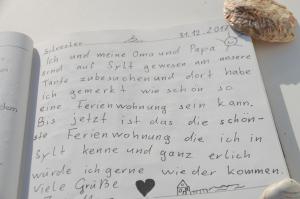 Silvester 31.12.201
Ich und meine Oma und Papa
sind auf Sylt gewesen um unsere
Tante zubesuchen und dort habe
ich gemerkt wie schön so
eine Ferienwohnung sein kann.
Bis jetzt ist das die schön-
ste Ferienwohnung die ich in
Sylt kenne und ganz erlich
würde ich gerne wieder kommen.
Viele Grüße